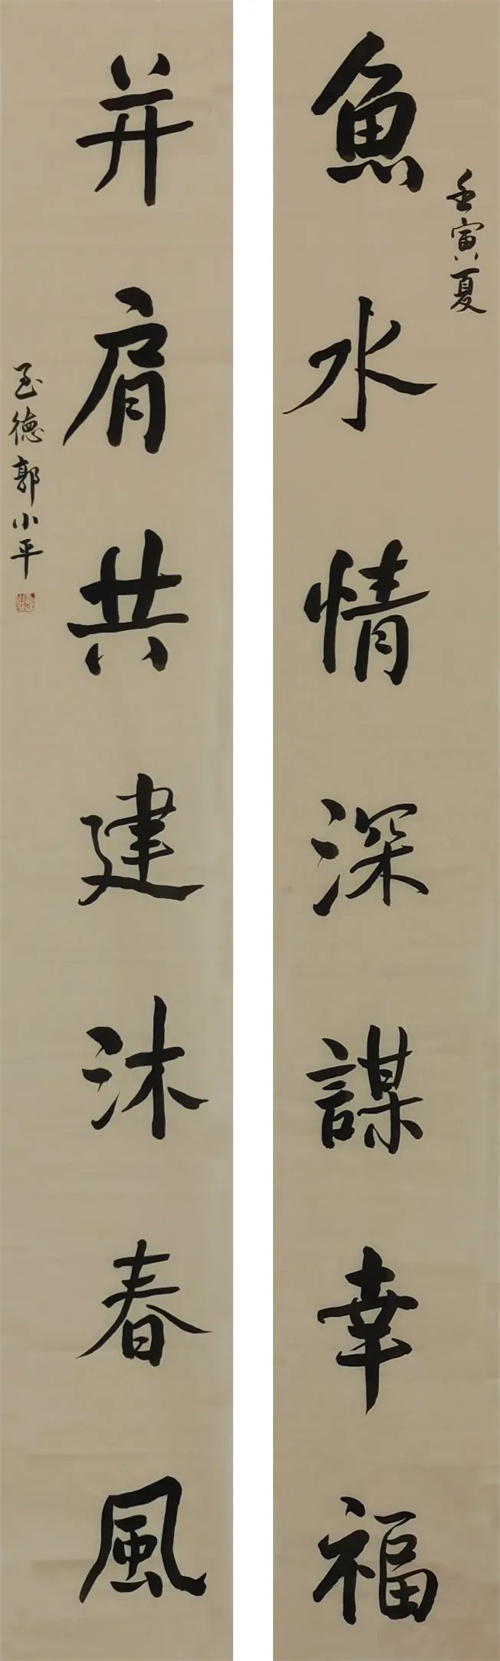 魚水情深謀幸福
壬寅夏
并肩共建沐春風
至德郭小平